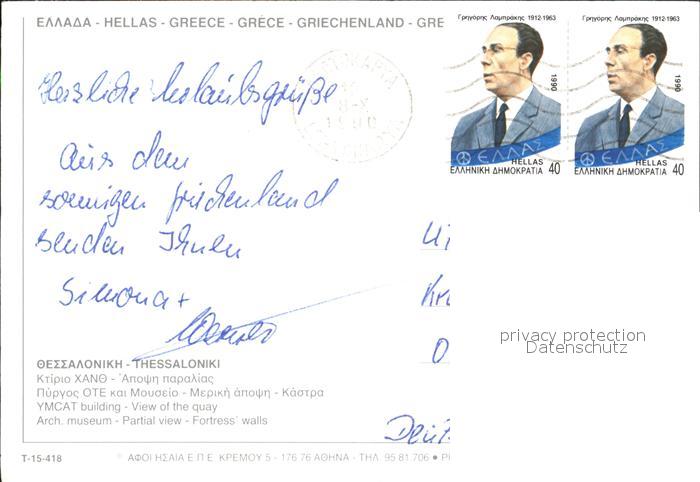 ΕΛΛΑΔΑ - HELLAS - GREECE - GRÈCE - GRIECHENLAND - GRE
Γρηγόρης Λαμπράκης 1912-1963
Γρηγόρης Λαμπράκης 1912-1963
1990
1990
ΕΛΛΑΣ
ΕΛΛΑΣ
HELLAS
HELLAS
ΕΛΛΗΝΙΚΗ ΔΗΜΟΚΡΑΤΙΑ 40
ΕΛΛΗΝΙΚΗ ΔΗΜΟΚΡΑΤΙΑ 40
Herzliche Urlaubsgrüße
aus dem
sonnigen Griechenland
senden Ihnen
Simona +
privacy protection
Datenschutz
ΘΕΣΣΑΛΟΝΙΚΗ - THESSALONIKI
Κτίριο ΧΑΝΘ - Άποψη παραλίας
Πύργος ΟΤΕ και Μουσείο - Μερική άποψη - Κάστρα
YMCAT building - View of the quay
Arch. museum - Partial view - Fortress' walls
Deut
T-15-418
ΑΦΟΙ ΗΣΑΪΑ Ε.Π.Ε. ΚΡΕΜΟΥ 5 - 176 76 ΑΘΗΝΑ - ΤΗΛ. 95 81.706